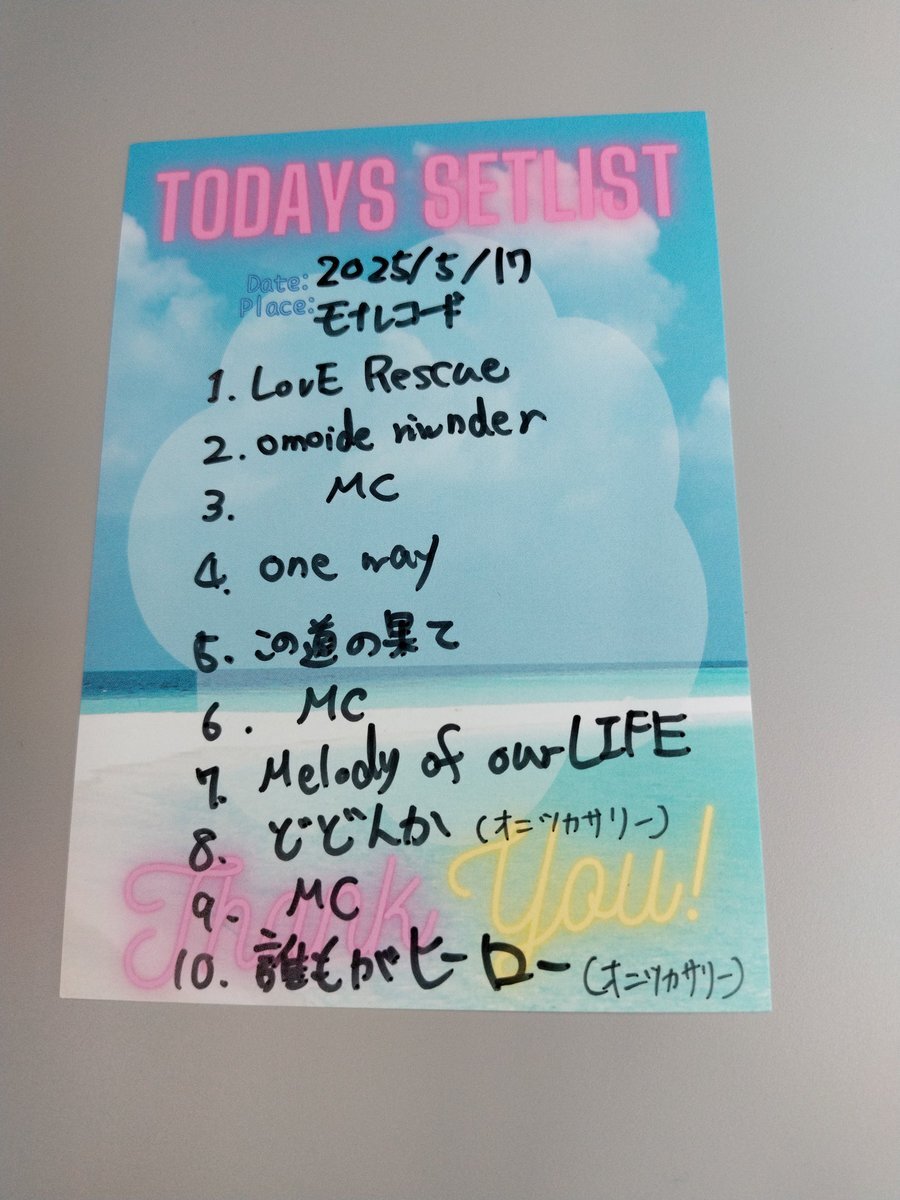 TODAYS SETLIST
Date: 2025/5/17
Place: モナレコード
1. LovE Rescue
2. omoide riwnder
3. MC
4. one way
5. この道の果て
6. MC
7. Melody of our LIFE
8. どどんか (オニツカサリー)
9. MC
10. 誰もがヒーロー (オニツカサリー)
Thank You!